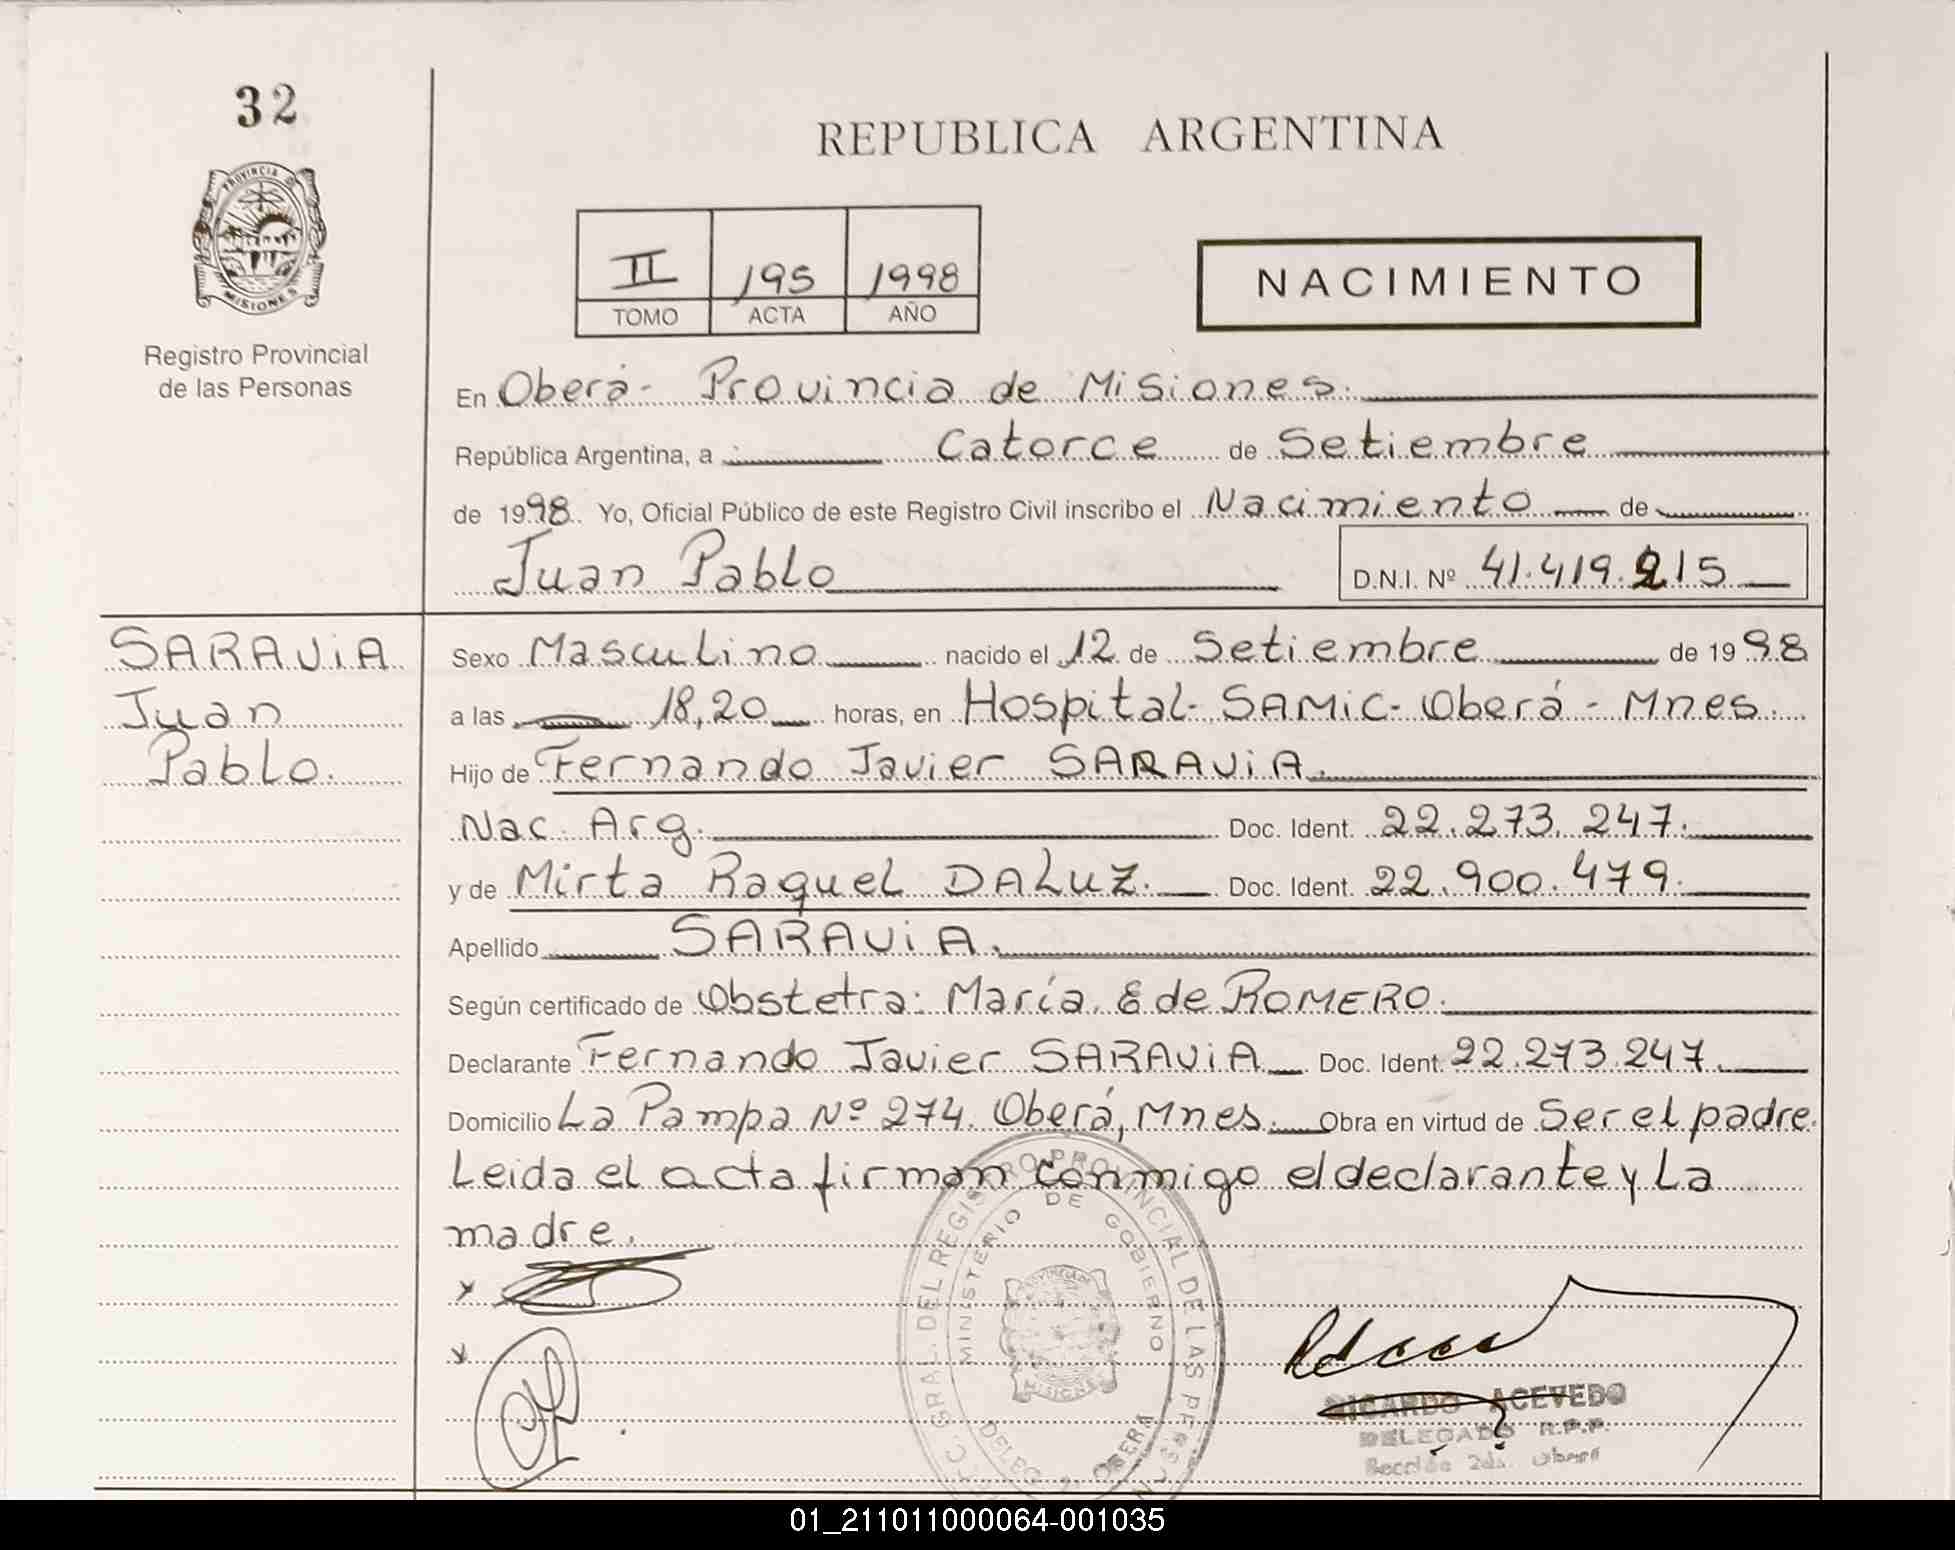 32
REPUBLICA ARGENTINA
PROVINCIA DE
MISIONES
Registro Provincial
de las Personas
II 195 1998
TOMO ACTA AÑO
NACIMIENTO
En Oberá- Provincia de Misiones.
República Argentina, a Catorce de Setiembre
de 1998. Yo, Oficial Público de este Registro Civil inscribo el Nacimiento de
Juan Pablo D.N.I. Nº 41.419.215
SARAViA
Juan
Pablo.
Sexo Masculino nacido el 12 de Setiembre de 1998
a las 18,20 horas, en Hospital- SAMiC- Oberá - Mnes.
Hijo de Fernando Javier SARAViA.
Nac. Arg. Doc. Ident. 22.273.247.
y de Mirta Raquel DALUZ. Doc. Ident. 22.900.479.
Apellido SARAViA.
Según certificado de Obstetra: María. E de ROMERO.
Declarante Fernando Javier SARAViA Doc. Ident. 22.273.247.
Domicilio La Pampa Nº 274. Oberá, Mnes. Obra en virtud de Ser el padre.
Leida el acta firman conmigo el declarante y La
madre.
GRAL. DEL REGISTRO PROVINCIAL DE LAS
MINISTERIO DE GOBIERNO
MISIONES
OBERÁ
RICARDO ACEVEDO
DELEGADO R.P.P.
Sección 2da. Oberá
01_211011000064-001035